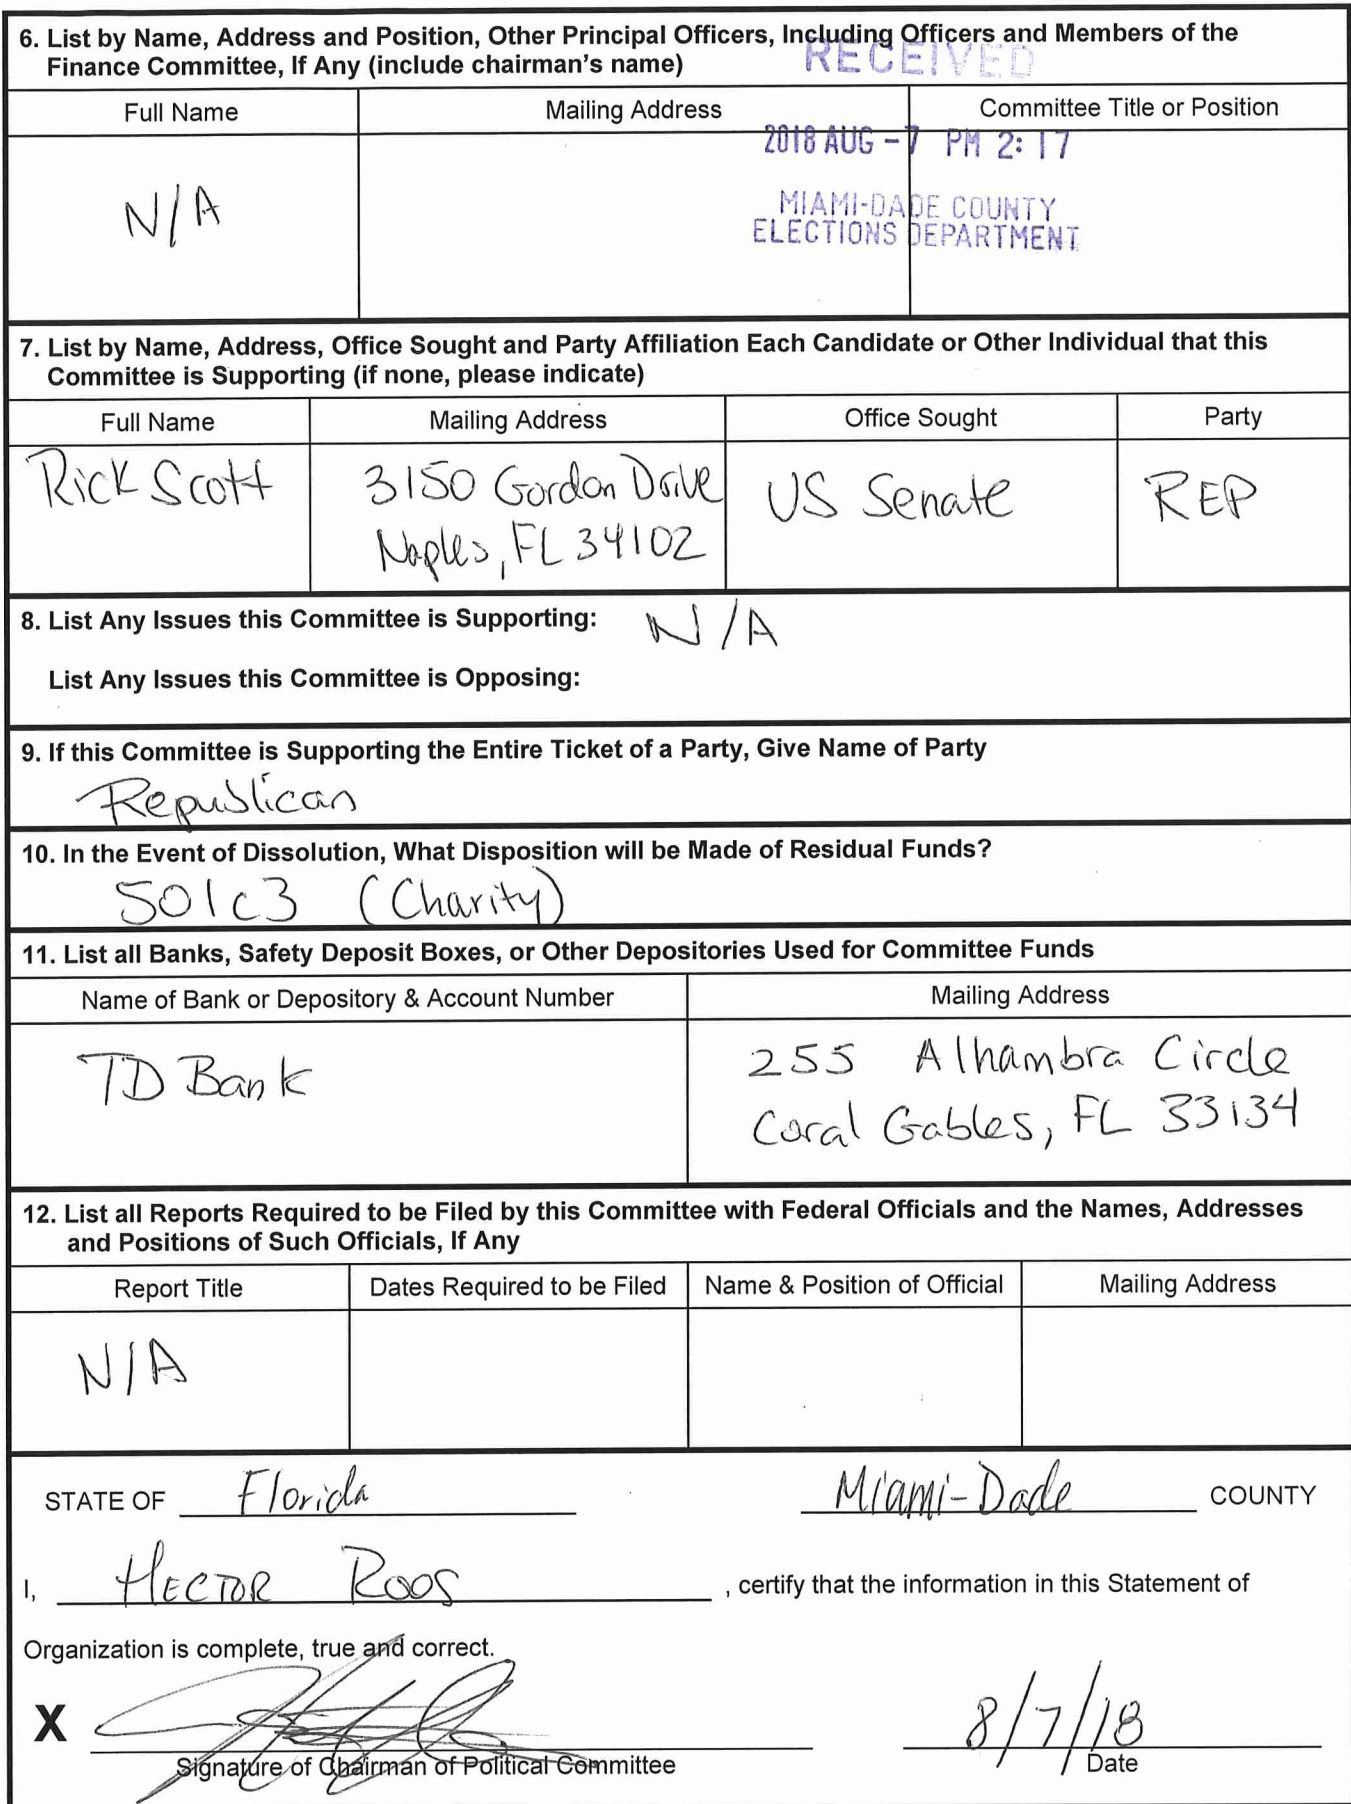 6. List by Name, Address and Position, Other Principal Officers, Including Officers and Members of the
Finance Committee, If Any (include chairman's name)
RECEIVED
Full Name Mailing Address Committee Title or Position
2018 AUG -7 PM 2:17
N/A
MIAMI-DADE COUNTY
ELECTIONS DEPARTMENT
7. List by Name, Address, Office Sought and Party Affiliation Each Candidate or Other Individual that this
Committee is Supporting (if none, please indicate)
Full Name Mailing Address Office Sought Party
Rick Scott 3150 Gordon Drive US Senate REP
Naples, FL 34102
8. List Any Issues this Committee is Supporting: N/A
List Any Issues this Committee is Opposing:
9. If this Committee is Supporting the Entire Ticket of a Party, Give Name of Party
Republican
10. In the Event of Dissolution, What Disposition will be Made of Residual Funds?
501c3 (Charity)
11. List all Banks, Safety Deposit Boxes, or Other Depositories Used for Committee Funds
Name of Bank or Depository & Account Number Mailing Address
TD Bank 255 Alhambra Circle
Coral Gables, FL 33134
12. List all Reports Required to be Filed by this Committee with Federal Officials and the Names, Addresses
and Positions of Such Officials, If Any
Report Title Dates Required to be Filed Name & Position of Official Mailing Address
N/A
STATE OF Florida Miami-Dade COUNTY
I, HECTOR ROOS, certify that the information in this Statement of
Organization is complete, true and correct.
X 8/7/18
Signature of Chairman of Political Committee Date